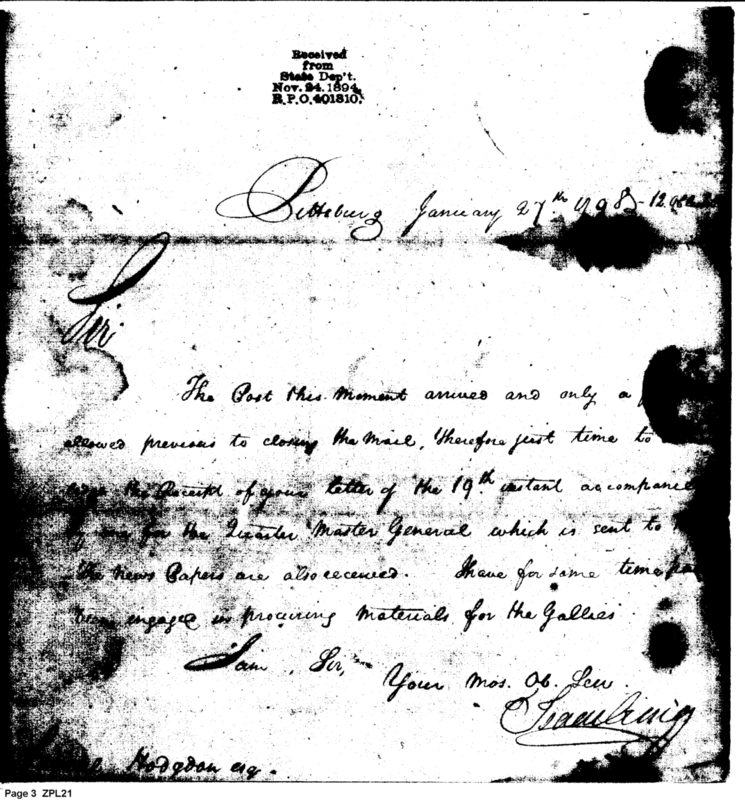 Received
from
State Dep't.
Nov. 24. 1894.
R.P.O. 401810.
Pittsburg January 27th 1798 - 12
Sir
The Post this Moment arrived and only a
allowed previous to closing the Mail, therefore just time to
the Receipt of your letter of the 19th instant accompanied
by one for the Quarter Master General which is sent to
The News Papers are also received. I have for some time
been engaged in procuring Materials for the Gallies.
I am, Sir,
Your Mos. Ob. Ser.
Isaac Craig
Hodgdon esq.
Page 3 ZPL21